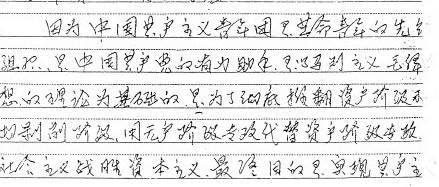 因为中国共产主义青年团是革命青年的先进
组织,是中国共产党的有力助手,是以马列主义毛
想的理论为基础的,是为了彻底推翻资产阶级和
切剥削阶级,用无产阶级专政代替资产阶级专政,
社会主义战胜资本主义,最终目的是实现共产主